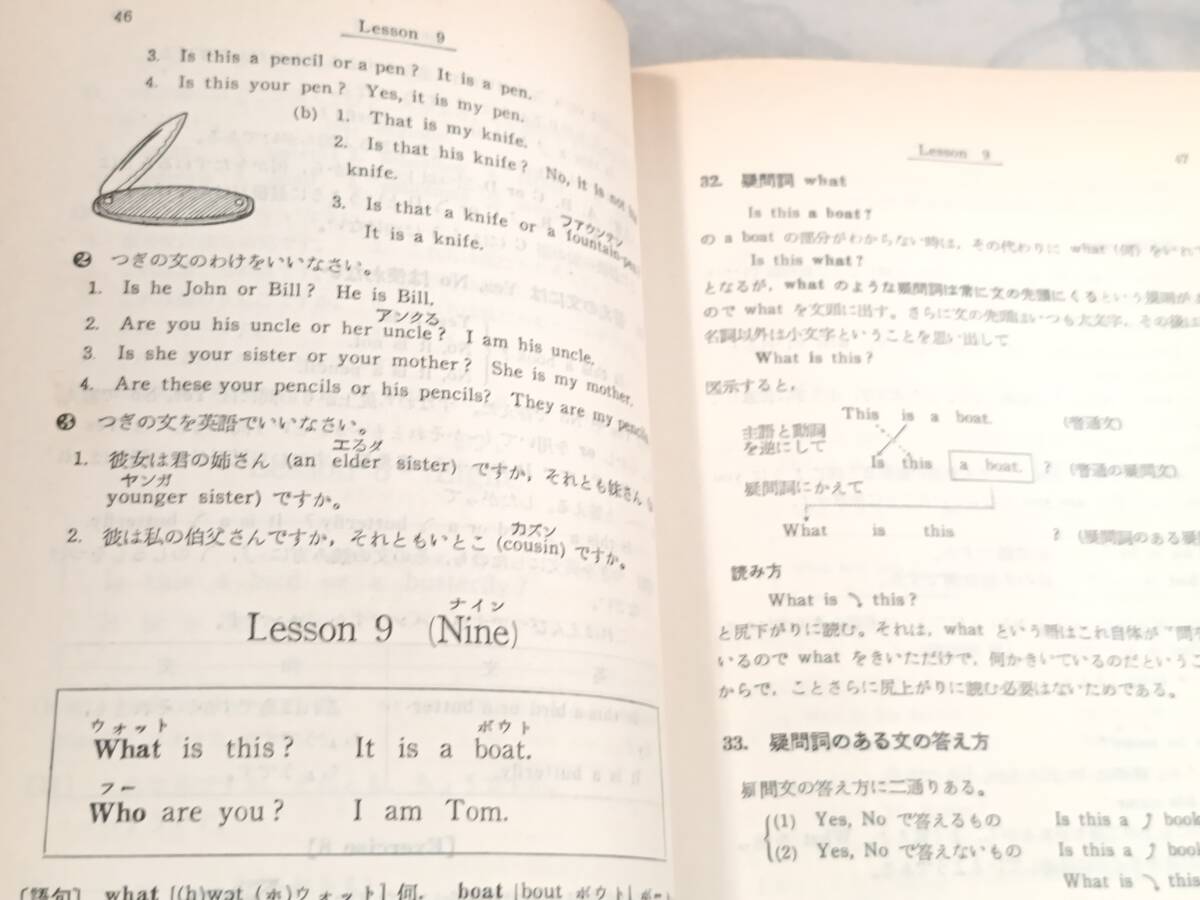 46
Lesson 9
3. Is this a pencil or a pen? It is a pen.
4. Is this your pen? Yes, it is my pen.
(b) 1. That is my knife.
2. Is that his knife? No, it is not his
knife.
3. Is that a knife or a fountain-pen
ファウンテン
It is a knife.
❷ つぎの文のわけをいいなさい。
1. Is he John or Bill? He is Bill.
アンクる
2. Are you his uncle or her uncle? I am his uncle.
3. Is she your sister or your mother? She is my mother.
4. Are these your pencils or his pencils? They are my pencils
❸ つぎの文を英語でいいなさい。
エるダ
1. 彼女は君の姉さん (an elder sister) ですか, それとも妹さん
ヤンガ
younger sister) ですか。
カズン
2. 彼は私の伯父さんですか, それともいとこ (cousin) ですか。
ナイン
Lesson 9 (Nine)
ウォット ボウト
What is this? It is a boat.
フー
Who are you? I am Tom.
[語句] what [(h)wət (ホ)ウォット] 何. boat [bout ボウト]
Lesson 9
47
32. 疑問詞 what
Is this a boat?
の a boat の部分がわからない時は, その代わりに what (何) をいれ
Is this what?
となるが, what のような疑問詞は常に文の先頭にくるという規則が
ので what を文頭に出す。さらに文の先頭はいつも大文字, その後は
名詞以外は小文字ということを思い出して
What is this?
図示すると,
This is a boat. (普通文)
主語と動詞
を逆にして
Is this a boat. ? (普通の疑問文)
疑問詞にかえて
What is this ? (疑問詞のある疑
読み方
What is ↘ this?
と尻下がりに読む。それは, what という語はこれ自体が "問
いるので what をきいただけで, 何かきいているのだというこ
からで, ことさらに尻上がりに読む必要はないためである。
33. 疑問詞のある文の答え方
疑問文の答え方に二通りある。
(1) Yes, No で答えるもの Is this a ↗ book
(2) Yes, No で答えないもの Is this a ↗ book
What is ↘ this